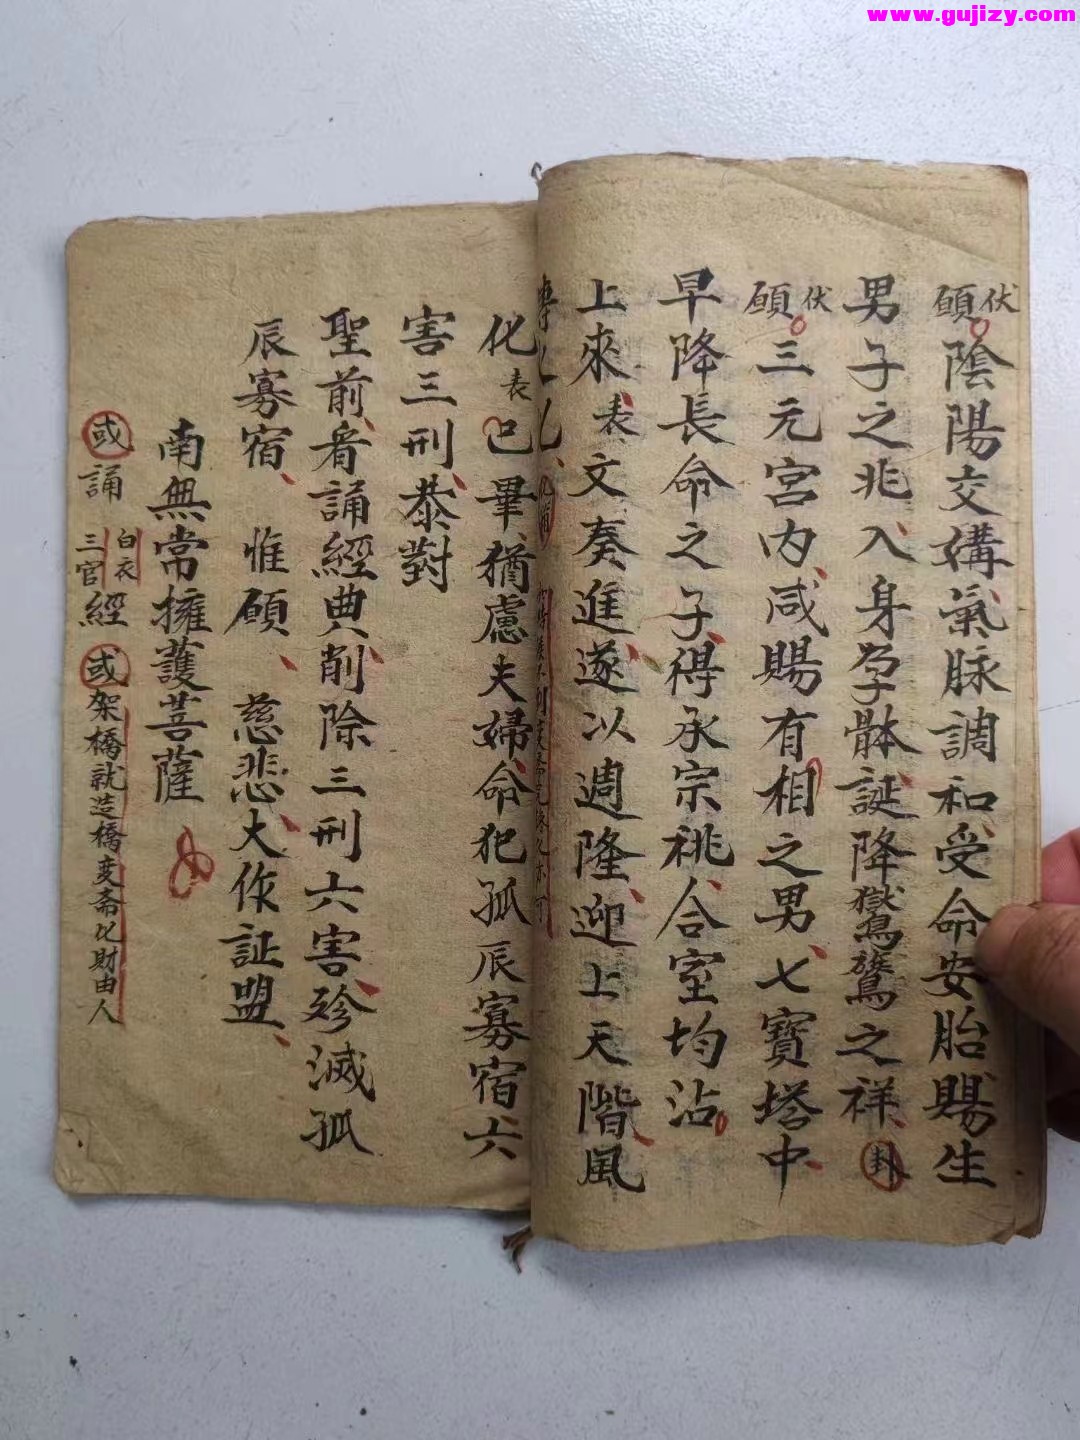 www.gujizy.com
伏願陰陽交媾氣脉調和受命安胎賜生
男子之兆入身孕骵誕降鸑鷟之祥封
伏願三元宮內咸賜有相之男七寶塔中
早降長命之子得承宗祧合室均沾
上來表文奏進遂以週隆迎上天階風
化表已畢猶慮夫婦命犯孤辰寡宿六
害三刑恭對
聖前看誦經典削除三刑六害殄滅孤
辰寡宿惟願慈悲大作証盟
南無常擁護菩薩
或誦白衣三官經或架橋就造橋变斋化財由人